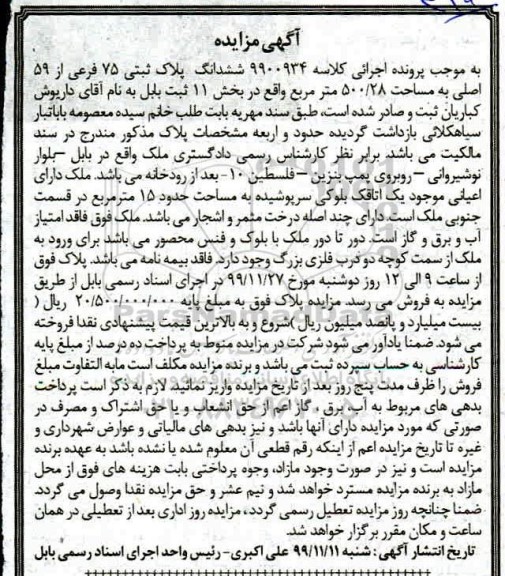 آگهی مزایده
به موجب پرونده اجرائی کلاسه ۹۹۰۰۹۳۴ ششدانگ پلاک ثبتی ۷۵ فرعی از ۵۹
اصلی به مساحت ۵۰۰/۲۸ متر مربع واقع در بخش ۱۱ ثبت بابل به نام آقای داریوش
کباریان ثبت و صادر شده است، طبق سند مهریه بابت طلب خانم سیده معصومه باباتبار
سیاهکلائی بازداشت گردیده حدود و اربعه مشخصات پلاک مذکور مندرج در سند
مالکیت می باشد. برابر نظر کارشناس رسمی دادگستری ملک واقع در بابل –بلوار
نوشیروانی – روبروی پمپ بنزین – فلسطین ۱۰- بعد از رودخانه می باشد. ملک دارای
اعیانی موجود یک اتاقک بلوکی سرپوشیده به مساحت حدود ۱۵ مترمربع در قسمت
جنوبی ملک است. دارای چند اصله درخت مثمر و اشجار می باشد. ملک فوق فاقد امتیاز
آب و برق و گاز است. دور تا دور ملک با بلوک و فنس محصور می باشد برای ورود به
ملک از سمت کوچه دو درب فلزی بزرگ وجود دارد. فاقد بیمه نامه می باشد. پلاک فوق
از ساعت ۹ الی ۱۲ روز دوشنبه مورخ ۹۹/۱۱/۲۷ در اجرای اسناد رسمی بابل از طریق
مزایده به فروش می رسد. مزایده پلاک فوق به مبلغ پایه ۲۰/۵۰۰/۰۰۰/۰۰۰ ریال (
بیست میلیارد و پانصد میلیون ریال )شروع و به بالاترین قیمت پیشنهادی نقدا فروخته
می شود. ضمنا یادآور می شود شرکت در مزایده منوط به پرداخت ده درصد از مبلغ پایه
کارشناسی به حساب سپرده ثبت می باشد و برنده مزایده مکلف است مابه التفاوت مبلغ
فروش را ظرف مدت پنج روز بعد از تاریخ مزایده واریز نمائید. لازم به ذکر است پرداخت
بدهی های مربوط به آب، برق ، گاز اعم از حق انشعاب و یا حق اشتراک و مصرف در
صورتی که مورد مزایده دارای آنها باشد و نیز بدهی های مالیاتی و عوارض شهرداری و
غیره تا تاریخ مزایده اعم از اینکه رقم قطعی آن معلوم شده یا نشده باشد به عهده برنده
مزایده است و نیز در صورت وجود مازاد، وجوه پرداختی بابت هزینه های فوق از محل
مازاد به برنده مزایده مسترد خواهد شد و نیم عشر و حق مزایده نقدا وصول می گردد.
ضمنا چنانچه روز مزایده تعطیل رسمی گردد ، مزایده روز اداری بعد از تعطیلی در همان
ساعت و مکان مقرر برگزار خواهد شد.
تاریخ انتشار آگهی : شنبه ۹۹/۱۱/۱۱ علی اکبری- رئیس واحد اجرای اسناد رسمی بابل
ParsNamadData